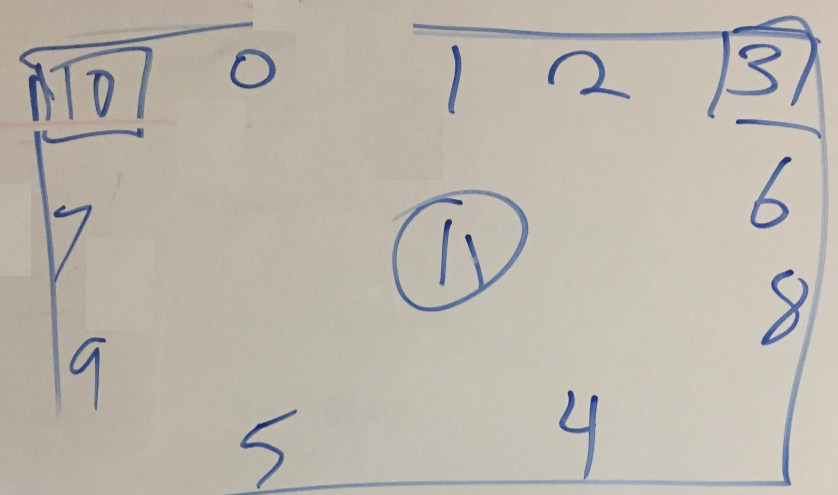 10 0 1 2 3
6
7 11
8
9
5 4